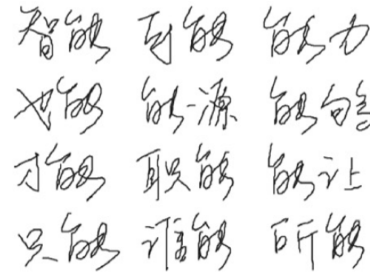 智能 可能 能力
也能 能源 能够
才能 职能 能让
只能 谁能 所能